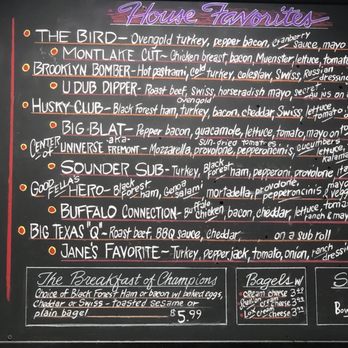 House Favorites
THE BIRD - Ovengold turkey, pepper bacon, cranberry sauce, mayo
MONTLAKE CUT - Chicken breast, bacon, Muenster, lettuce, tomato
BROOKLYN BOMBER - Hot pastrami, cold turkey, coleslaw, Swiss, Russian dressing
U DUB DIPPER - Roast beef, Swiss, horseradish mayo, secret
HUSKY CLUB - Black Forest ham, ovengold turkey, bacon, cheddar, Swiss, lettuce tomato
BIG BLAT - Pepper bacon, guacamole, lettuce, tomato, mayo on
CENTER of UNIVERSE -aka- FREMONT - Mozzarella, sun-dried tomatoes, provolone, pepperoncinis, cucumbers lettuce
SOUNDER SUB - Turkey, Black Forest ham, pepperoni, provolone
GOODFELLAS HERO - Black Forest ham, Genoa salami, mortadella, provolone, pepperoncinis,
BUFFALO CONNECTION - Buffalo chicken, bacon, cheddar, lettuce, ranch & mayo
BIG TEXAS "Q" - Roast beef, BBQ sauce, cheddar on a sub roll
JANE'S FAVORITE - Turkey, pepperjack, tomato, onion,
The Breakfast of Champions
Choice of Black Forest Ham or bacon w/ baked eggs,
Cheddar or Swiss - toasted sesame or
plain bagel $5.99
BAGELS w/
cream cheese
cream cheese
Lox cream cheese